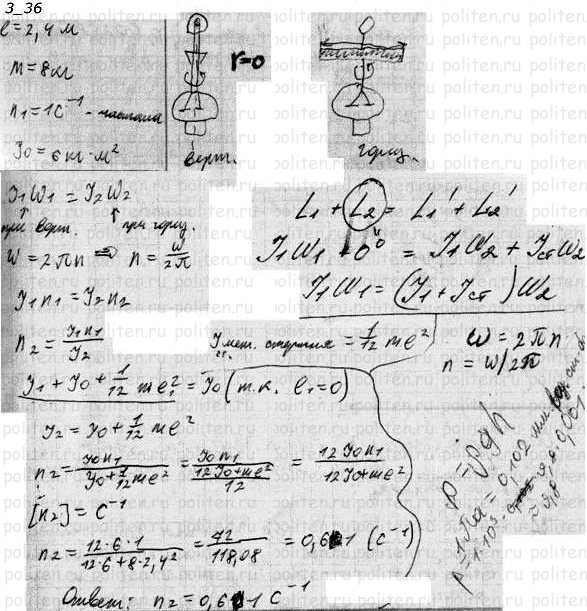 3_36
ℓ = 2,4 м
m = 8 кг
n₁ = 1 с⁻¹ - частота
J₀ = 6 кг·м²
r = 0
верт.
гориз.
J₁ω₁ = J₂ω₂
при верт. при гориз.
ω = 2πn ⇒ n = ω/2π
J₁n₁ = J₂n₂
n₂ = J₁n₁/J₂
L₁ + L₂ = L₁' + L₂'
J₁ω₁ + 0 = J₁ω₂ + Jстω₂
J₁ω₁ = (J₁ + Jст)ω₂
J мет. стержня = 1/12 mℓ²
ω = 2πn
n = ω/2π
J₁ + J₀ + 1/12 mℓ₁² = J₀ (т.к. ℓ₁ = 0)
J₂ = J₀ + 1/12 mℓ²
n₂ = J₀n₁/(J₀ + 1/12 mℓ²) = J₀n₁/((12J₀ + mℓ²)/12) = 12J₀n₁/(12J₀ + mℓ²)
[n₂] = с⁻¹
n₂ = 12·6·1/(12·6 + 8·2,4²) = 72/118,08 = 0,61 (с⁻¹)
Ответ: n₂ = 0,61 с⁻¹
P = ρgh